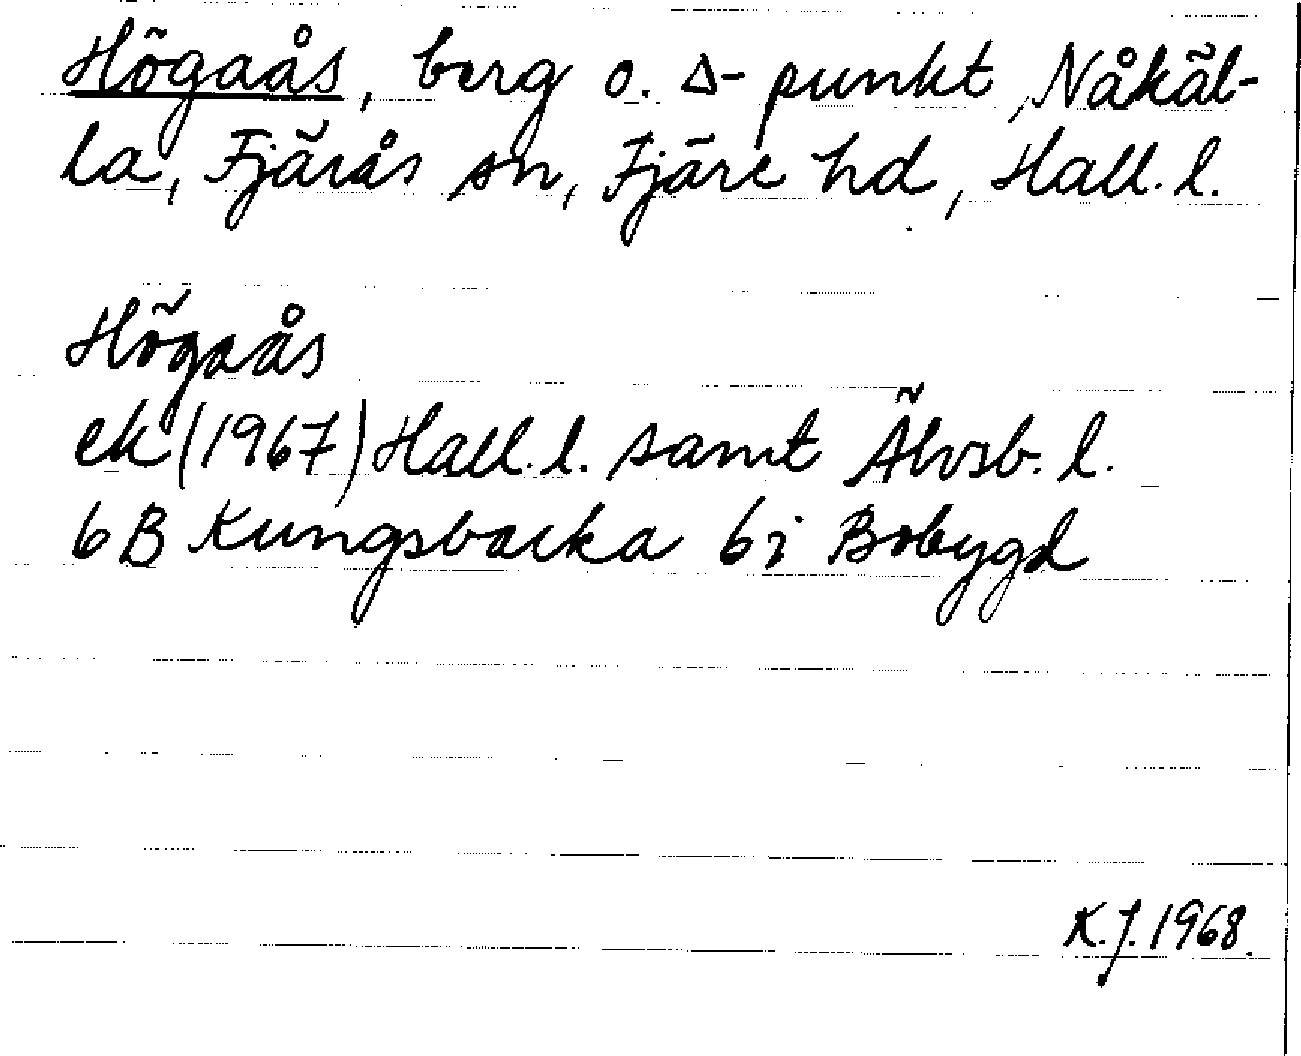 Högaås, berg o. Δ-punkt, Nåkäl-
la, Fjärås sn, Fjäre hd, Hall. l.
Högaås
ek (1967) Hall. l. samt Älvsb. l.
6B Kungsbacka 6j Bobygd
K.J. 1968.